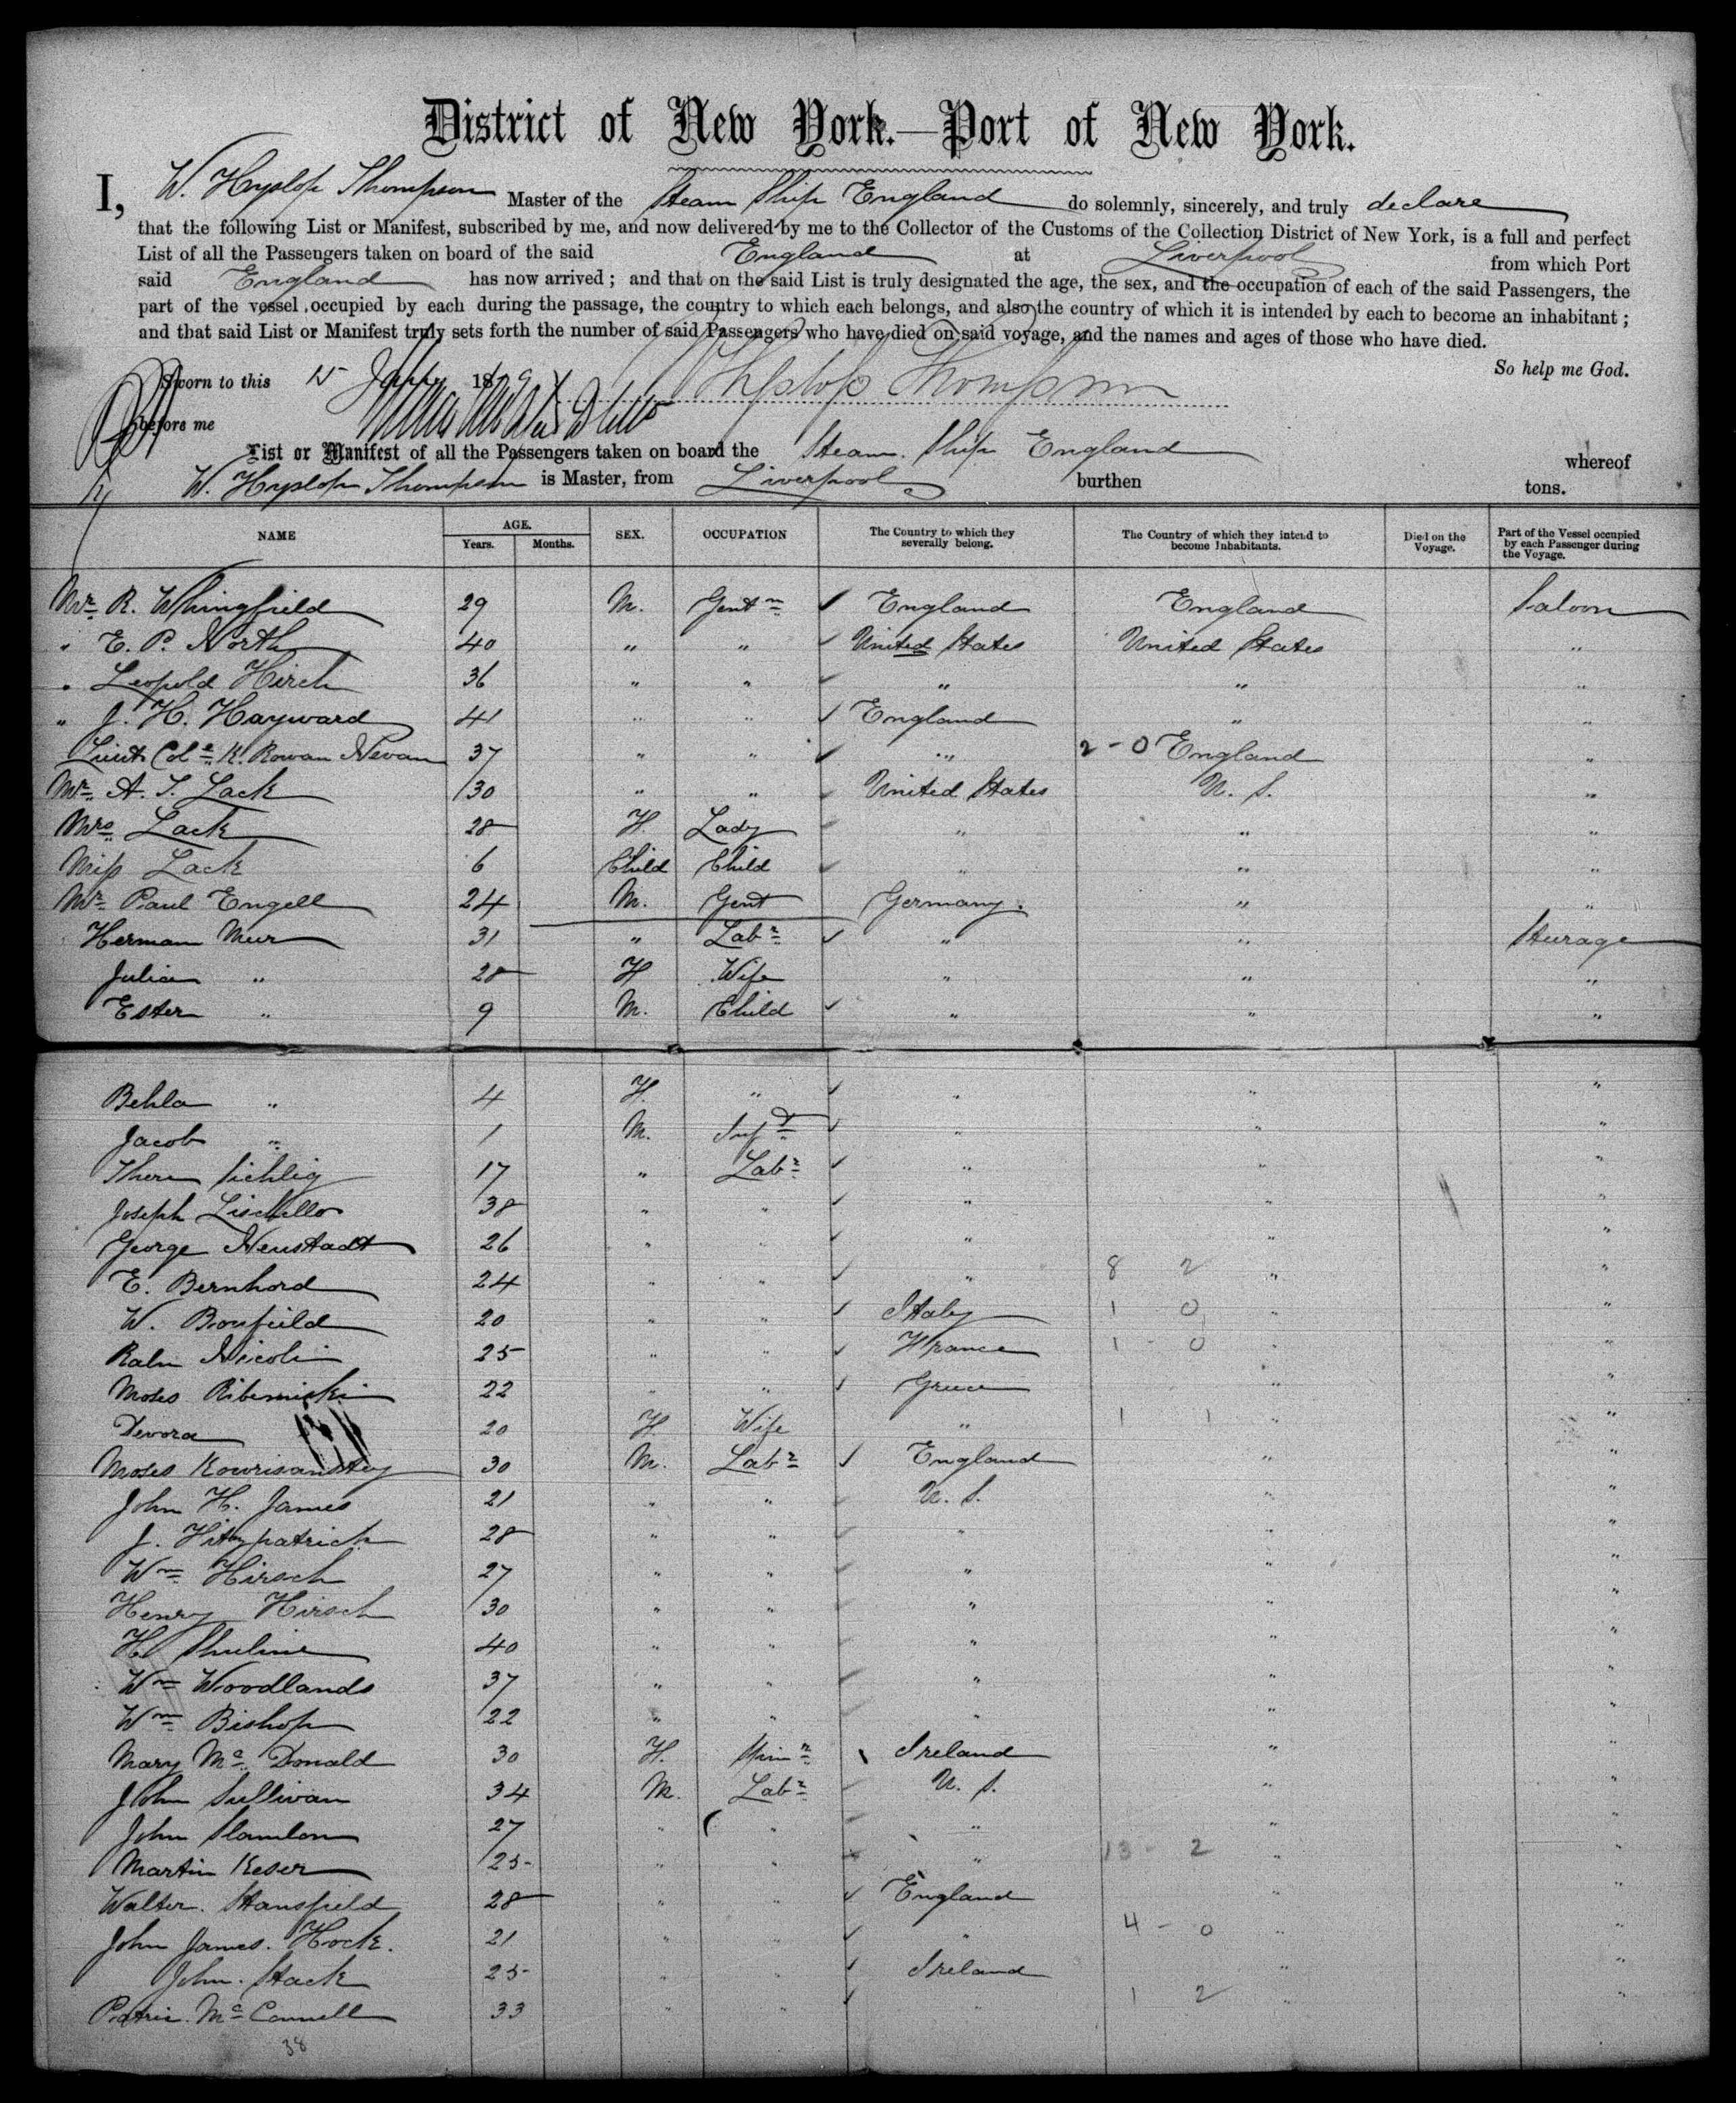 District of New York.—Port of New York.
I, W. Hyslop Thompson Master of the Steam Ship England do solemnly, sincerely, and truly declare
that the following List or Manifest, subscribed by me, and now delivered by me to the Collector of the Customs of the Collection District of New York, is a full and perfect
List of all the Passengers taken on board of the said England at Liverpool from which Port
said England has now arrived; and that on the said List is truly designated the age, the sex, and the occupation of each of the said Passengers, the
part of the vessel occupied by each during the passage, the country to which each belongs, and also the country of which it is intended by each to become an inhabitant;
and that said List or Manifest truly sets forth the number of said Passengers who have died on said voyage, and the names and ages of those who have died.
So help me God.
Sworn to this 15 18 Hyslop Thompson
before me
List or Manifest of all the Passengers taken on board the Steam Ship England whereof
W. Hyslop Thompson is Master, from Liverpool burthen tons.
NAME AGE. Years. Months. SEX. OCCUPATION The Country to which they severally belong. The Country of which they intend to become Inhabitants. Died on the Voyage. Part of the Vessel occupied by each Passenger during the Voyage.
Mr. R. Whingfield 29 M. Gentn England England Saloon
" E. P. North 40 " " United States United States "
" Leopold Hirch 36 " " " " "
" J. H. Hayward 41 " " England " "
Lieut Cole K. Rowan Nevan 37 " " " 2-0 England "
Mr. A. T. Lack 30 " " United States U. S. "
Mrs Lack 28 F. Lady " " "
Miss Lack 6 Child Child " " "
Mr. Paul Engell 24 M. Gent Germany. " "
Herman Meur 31 " Labr " " Steurage
Julia " 28 F Wife " " "
Ester " 9 M. Child " " "
Behla " 4 F. " " " "
Jacob " 1 M. Inft " " "
Sichlig 17 " Labr " " "
Joseph 38 " " " " "
George Neustadt 26 " " " " "
E. Bernhord 24 " " " 8 2 " "
W. Bonfield 20 " " Italy 1 0 " "
Nicoli 25 " " France 1-0 " "
Moses 22 " " Greece " "
Devora 20 F. Wife " 1 1 " "
Moses 30 M. Labr England " "
John H. James 21 " " U. S. " "
J. Fitzpatrick 28 " " " " "
Wm Hirsch 27 " " " " "
Henry Hirsch 30 " " " " "
H. Shuline 40 " " " " "
Wm Woodlands 37 " " " " "
Wm Bishop 22 " " " " "
Mary Mc Donald 30 F. Spinr Ireland " "
John Sullivan 34 M. Labr U. S. " "
John 27 " " " " "
Martin Keser 25 " " " 13-2 " "
Walter. Stansfield 28 " " England " "
John James. Hock. 21 " " " 4-0 " "
John. Stack 25 " " Ireland " "
Patric. Mc Connell 33 " " " 1 2 " "
38